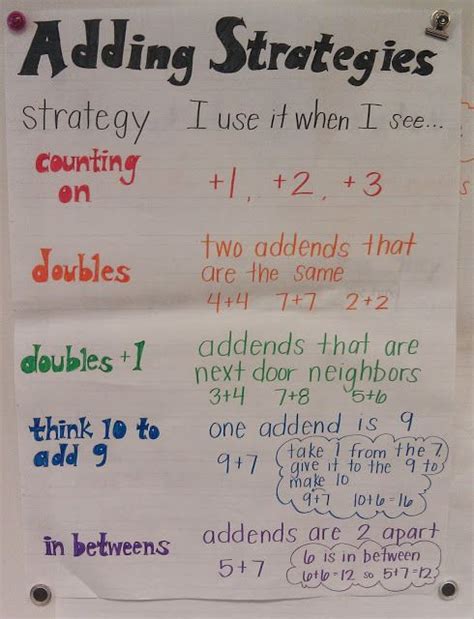 Adding Strategies
strategy I use it when I see...
counting
on
+1, +2, +3
doubles
two addends that
are the same
4+4 7+7 2+2
doubles +1
addends that are
next door neighbors
3+4 7+8 5+6
think 10 to
add 9
one addend is 9
9+7
take 1 from the 7,
give it to the 9 to
make 10
9+7 10+6=16
in betweens
addends are 2 apart
5+7
6 is in between
6+6=12 so 5+7=12